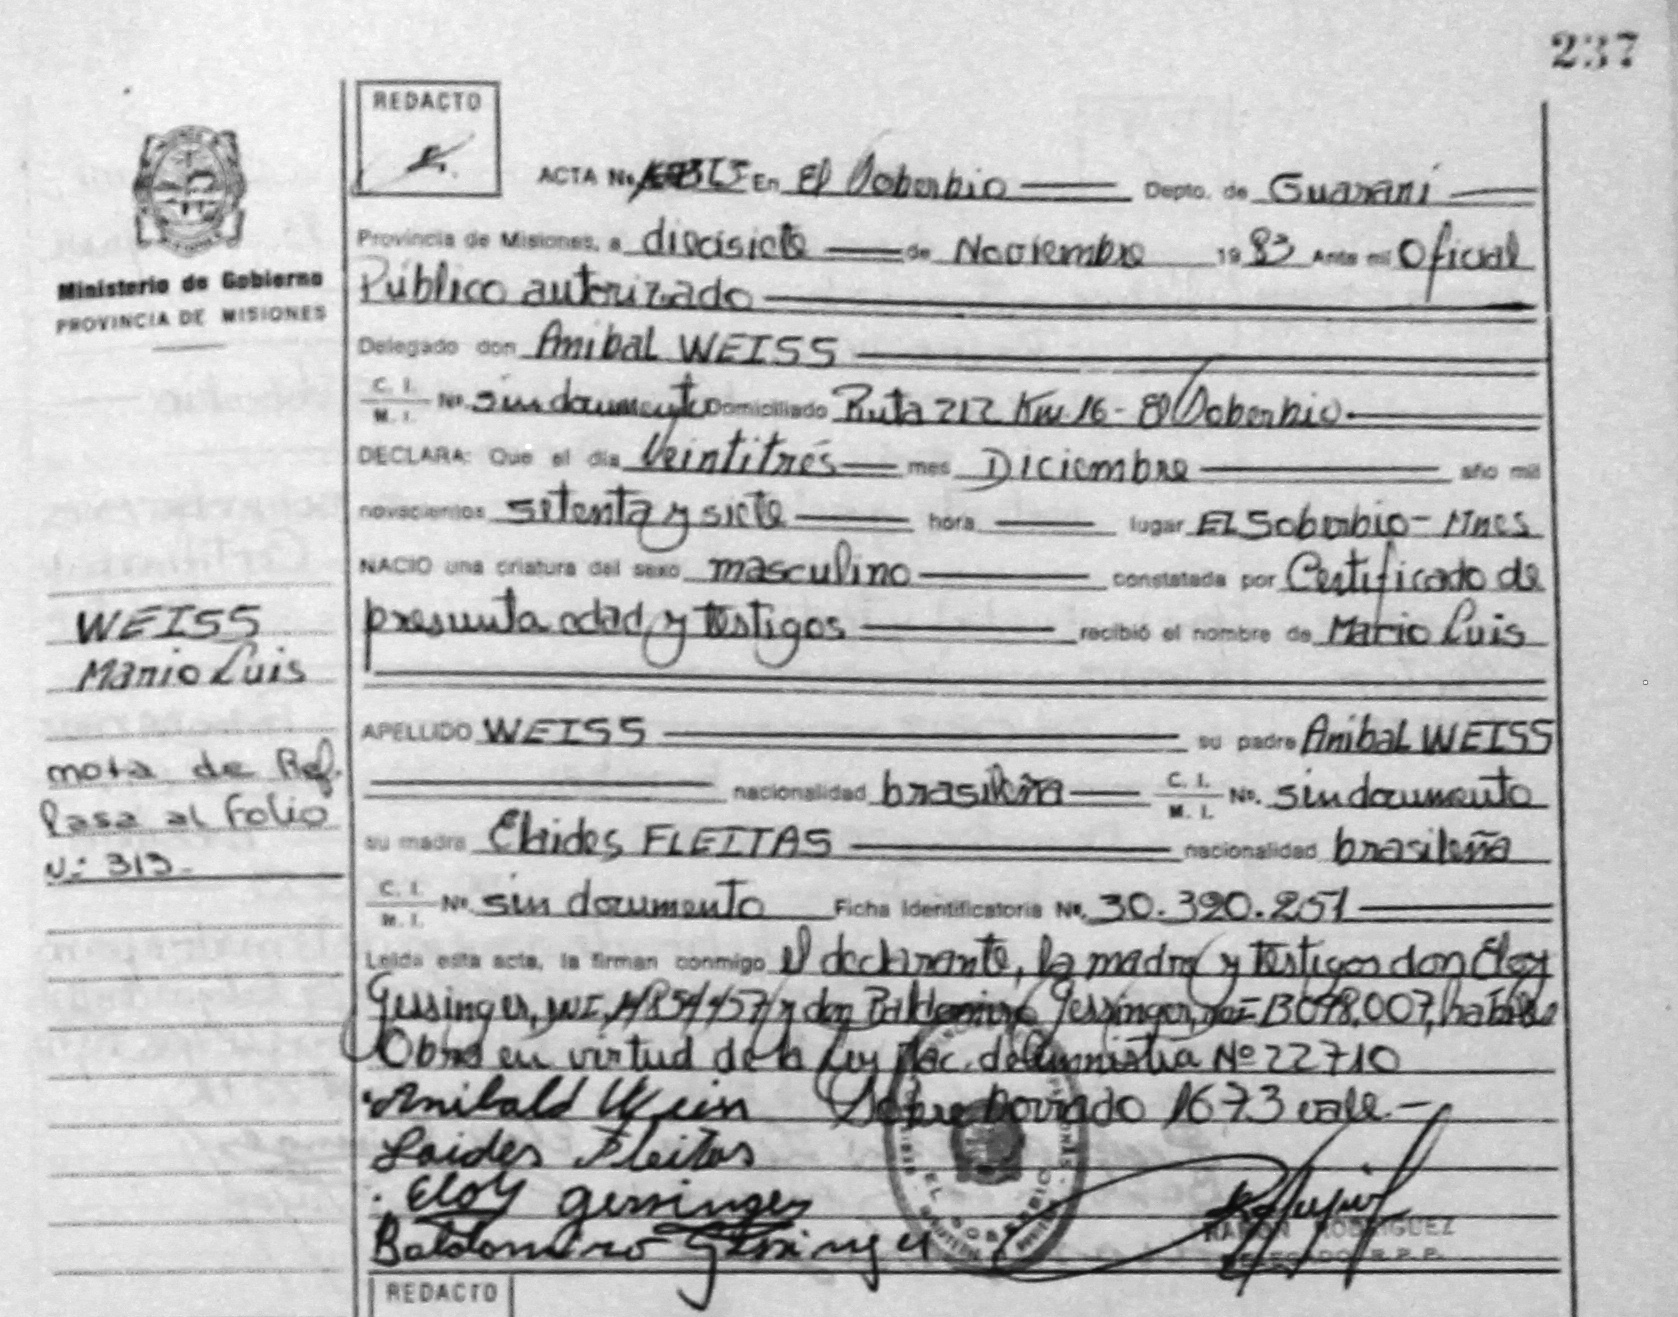 237
REDACTO
ACTA No. En El Soberbio Depto. de Guaraní
Ministerio de Gobierno
PROVINCIA DE MISIONES
Provincia de Misiones, a diecisiete de Noviembre 1983 Ante mi Oficial
Público autorizado
Delegado don Anibal WEISS
C. I.
M. I. No. sin documento Domiciliado Ruta 212 Km. 16 - El Soberbio
DECLARA: Que el día Veintitrés mes Diciembre año mil
novecientos setenta y siete hora lugar El Soberbio - Mnes
NACIO una criatura del sexo masculino constatada por Certificado de
presunta edad y testigos recibió el nombre de Mario Luis
WEISS
Mario Luis
APELLIDO WEISS su padre Anibal WEISS
nota de Ref.
Pasa al Folio
N: 313-
nacionalidad brasileña C. I.
M. I. No. sin documento
su madre FLEITAS nacionalidad brasileña
C. I.
M. I. No. sin documento Ficha Identificatoria No. 30.390.251
Leída esta acta, la firman conmigo el declarante, la madre y testigos don Eloy
Gessinger, y don Baldomiro Gessinger,
Obra en virtud de la Ley Nac. de Amnistia Nº 22710
Anibald Wein Sobre borrado 1673 vale.-
Laides Fleitas
Eloy gessinger
Baldomiro gessinger
EL SOBERBIO
RAMON RODRIGUEZ
DELEGADO R.P.P.
REDACTO